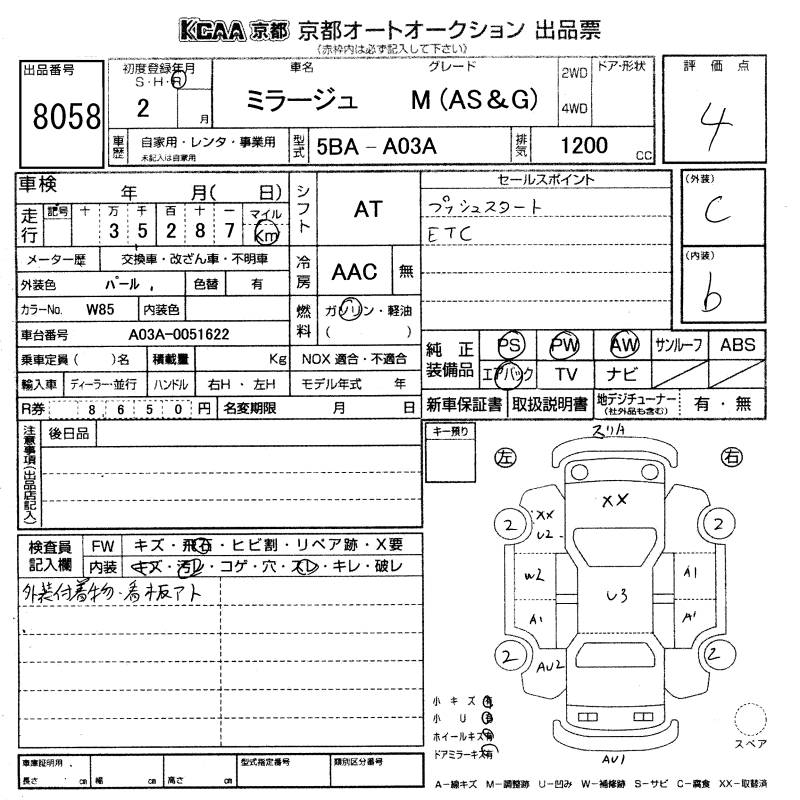 KCAA 京都 京都オートオークション 出品票
(赤枠内は必ず記入して下さい)
出品番号 8058
初度登録年月 S・H・R 2 月
車名 ミラージュ
グレード M (AS&G)
2WD 4WD
ドア・形状
評価点 4
車歴 自家用・レンタ・事業用 未記入は自家用
型式 5BA-A03A
排気 1200 cc
車検 年 月( 日)
走行 記号 十 万 千 百 十 一 マイル Km
3 5 2 8 7
メーター歴 交換車・改ざん車・不明車
外装色 パール 色替 有
カラーNo. W85 内装色
車台番号 A03A-0051622
乗車定員 ( )名 積載量 Kg
輸入車 ディーラー・並行 ハンドル 右H・左H
R券 8 6 5 0 円 名変期限 月 日
シフト AT
冷房 AAC 無
燃料 ガソリン・軽油 ( )
NOX 適合・不適合
モデル年式 年
セールスポイント
プッシュスタート
ETC
(外装) C
(内装) b
純正装備品 PS PW AW サンルーフ ABS
エアバック TV ナビ
新車保証書 取扱説明書 地デジチューナー (社外品も含む) 有・無
注意事項(出品店記入) 後日品
キー預り
検査員記入欄 FW キズ・飛石・ヒビ割・リペア跡・X要
内装 キズ・汚レ・コゲ・穴・スレ・キレ・破レ
外装付着物・看板アト
左 右
スリA
XX
XX
U2
2 2
W2 A1
U3
A1 A1
2 2
AU2
AU1
小キズ 有
小U 有
ホイールキズ 有
ドアミラーキズ 有
スペア
車庫証明用 長さ cm 幅 cm 高さ cm
型式指定番号
類別区分番号
A-線キズ M-調整跡 U-凹み W-補修跡 S-サビ C-腐食 XX-取替済